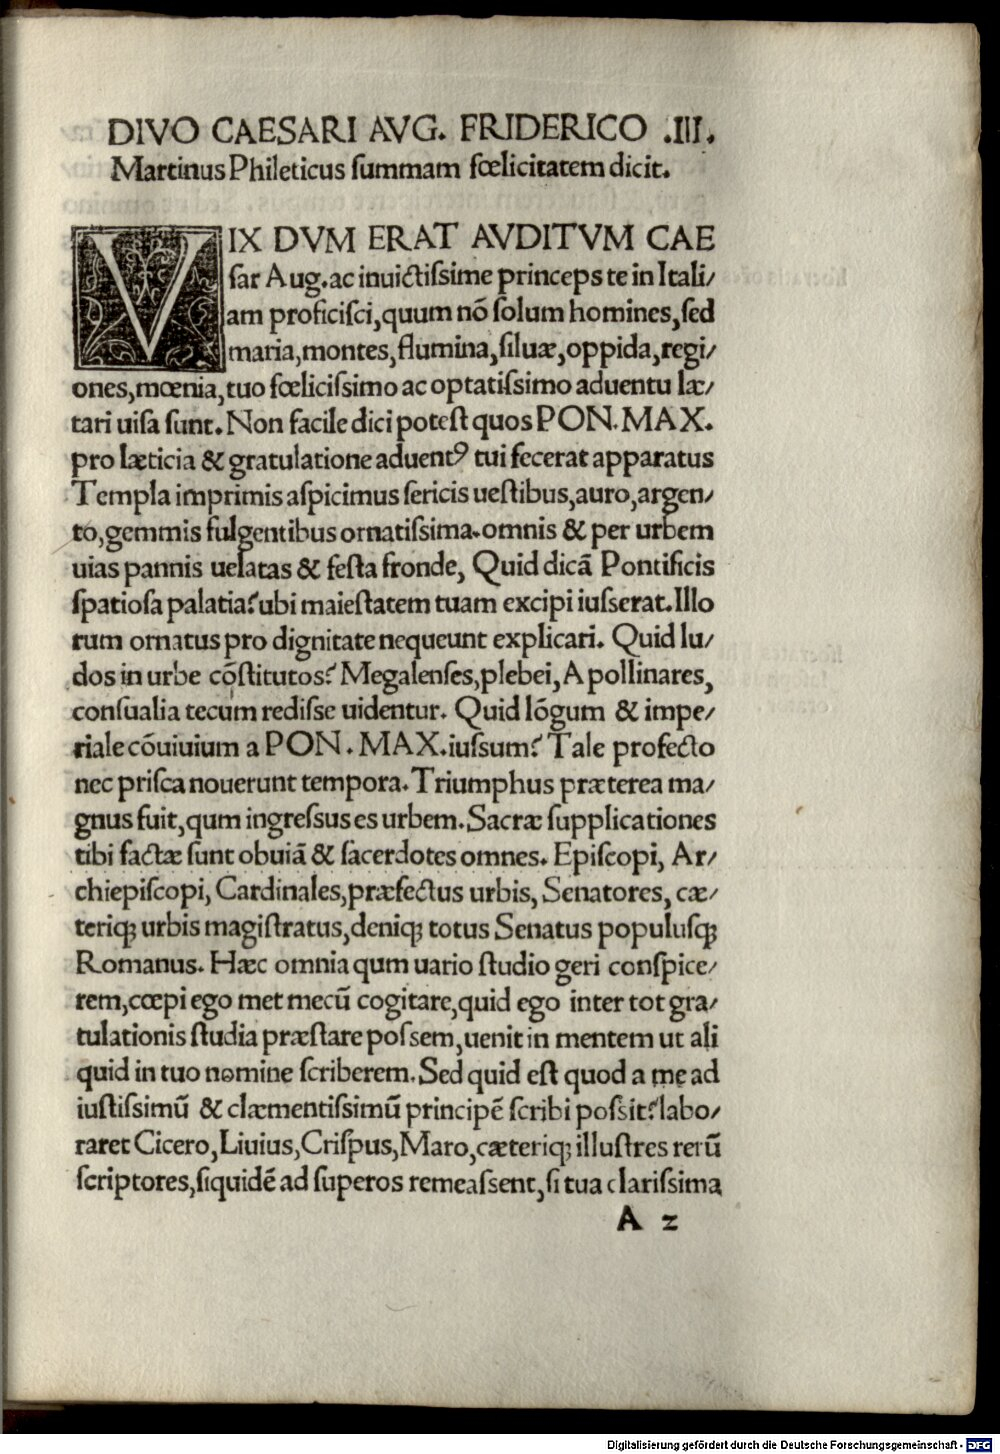 DIVO CAESARI AVG. FRIDERICO .III.
Martinus Phileticus ſummam fœlicitatem dicit.
VIX DVM ERAT AVDITVM CAE
ſar Aug. ac inuictiſſime princeps te in Itali/
am proficiſci, quum nõ ſolum homines, ſed
maria, montes, flumina, ſiluæ, oppida, regi/
ones, mœnia, tuo fœliciſſimo ac optatiſſimo aduentu læ/
tari uiſa ſunt. Non facile dici poteſt quos PON. MAX.
pro læticia & gratulatione aduentꝰ tui fecerat apparatus
Templa imprimis aſpicimus ſericis ueſtibus, auro, argen/
to, gemmis fulgentibus ornatiſſima. omnis & per urbem
uias pannis uelatas & feſta fronde, Quid dicã Pontificis
ſpatioſa palatia? ubi maieſtatem tuam excipi iuſſerat. Illo
rum ornatus pro dignitate nequeunt explicari. Quid lu/
dos in urbe cõſtitutos? Megalenſes, plebei, Apollinares,
conſualia tecum rediſſe uidentur. Quid lõgum & impe/
riale cõuiuium a PON. MAX. iuſſum? Tale profecto
nec priſca nouerunt tempora. Triumphus præterea ma/
gnus fuit, qum ingreſſus es urbem. Sacræ ſupplicationes
tibi factæ ſunt obuiã & ſacerdotes omnes. Epiſcopi, Ar/
chiepiſcopi, Cardinales, præfectus urbis, Senatores, cæ/
teriqꝫ urbis magiſtratus, deniqꝫ totus Senatus populuſqꝫ
Romanus. Hæc omnia qum uario ſtudio geri conſpice/
rem, cœpi ego met mecũ cogitare, quid ego inter tot gra/
tulationis ſtudia præſtare poſſem, uenit in mentem ut ali
quid in tuo nomine ſcriberem. Sed quid eſt quod a me ad
iuſtiſſimũ & clæmentiſſimũ principẽ ſcribi poſſit? labo/
raret Cicero, Liuius, Criſpus, Maro, cæteriqꝫ illuſtres rerũ
ſcriptores, ſiquidẽ ad ſuperos remeaſſent, ſi tua clariſſima
A 2
Digitalisierung gefördert durch die Deutsche Forschungsgemeinschaft - DFG